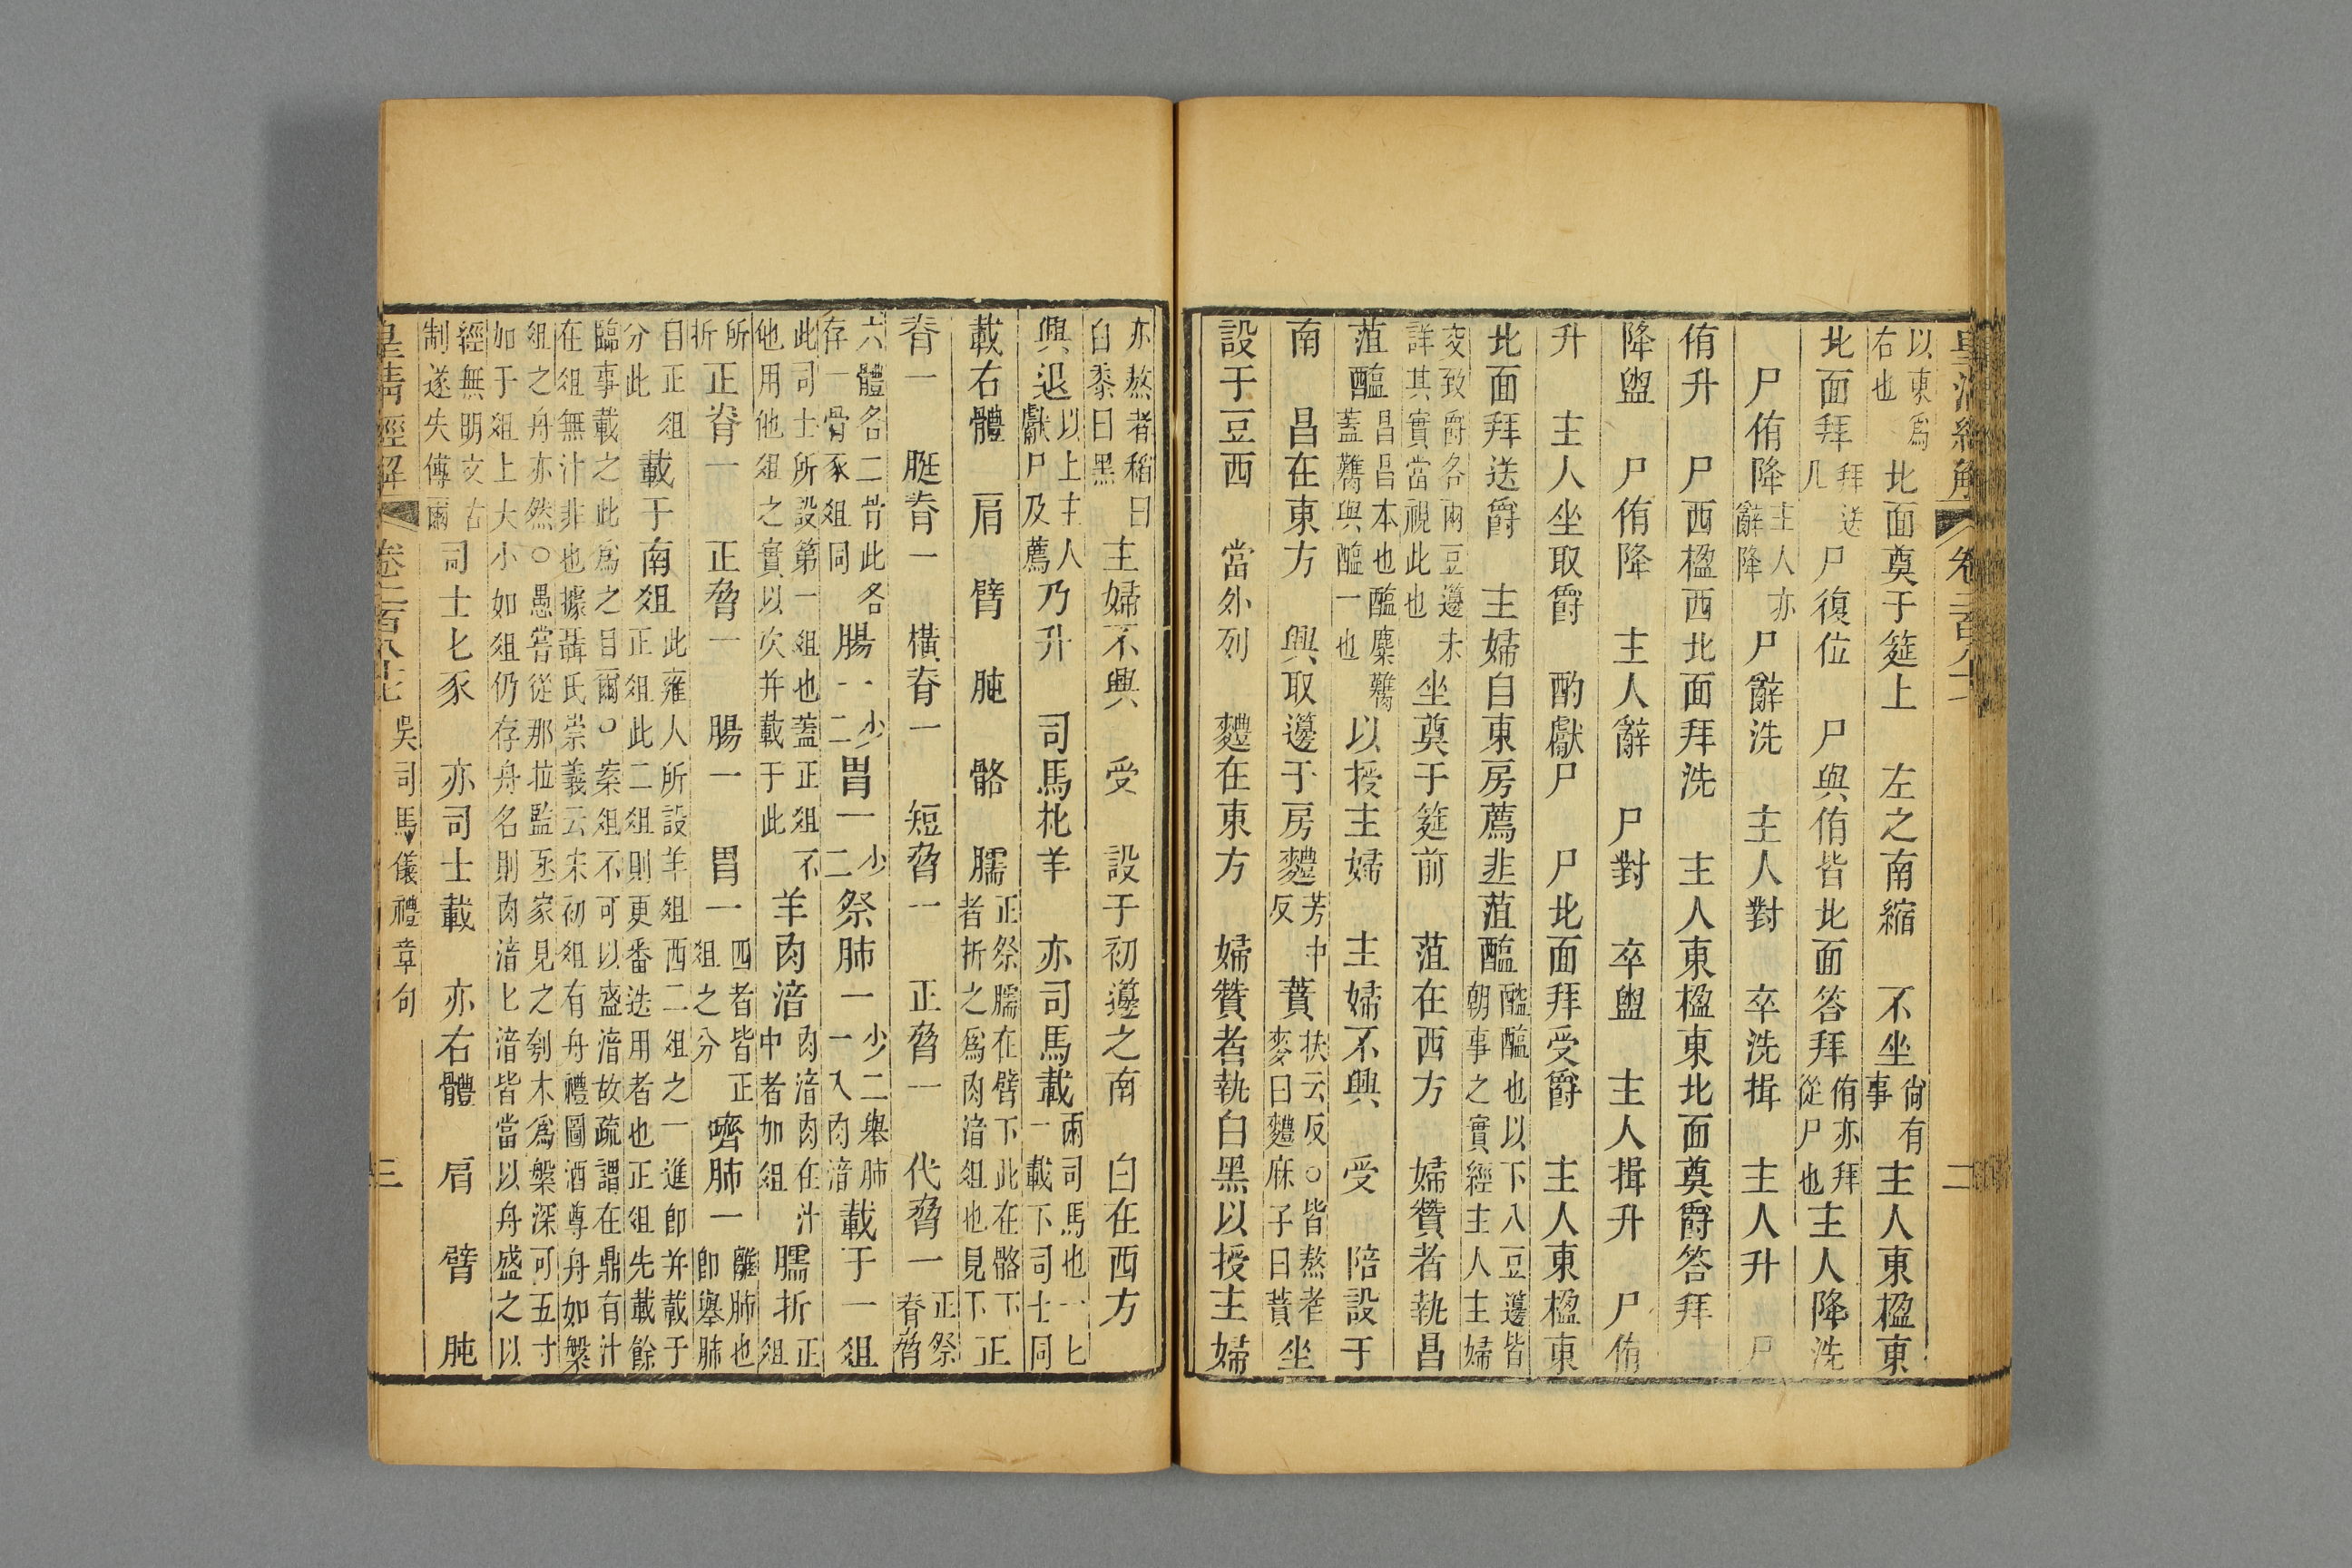 皇清經解 卷二百八十七 二
以東爲右也 北面奠于筵上 左之南縮 不坐 尙有事 主人東楹東
北面拜 拜送几 尸復位 尸與侑皆北面答拜 侑亦拜從尸也 主人降洗
尸侑降 主人亦辭降 尸辭洗 主人對 卒洗揖 主人升 尸
侑升 尸西楹西北面拜洗 主人東楹東北面奠爵答拜
降盥 尸侑降 主人辭 尸對 卒盥 主人揖升 尸侑
升 主人坐取爵 酌獻尸 尸北面拜受爵 主人東楹東
北面拜送爵 主婦自東房薦韭菹醢 醓醢也以下八豆籩皆朝事之實經主人主婦
交致爵各兩豆籩未詳其實當視此也 坐奠于筵前 菹在西方 婦贊者執昌
菹醢 昌昌本也醢麋臡蓋臡與醢一也 以授主婦 主婦不興 受 陪設于
南 昌在東方 興取籩于房麷 芳中反 蕡 扶云反○皆熬者麥曰麷麻子曰蕡 坐
設于豆西 當外列 麷在東方 婦贊者執白黑以授主婦
亦熬者稻曰白黍曰黑 主婦不興 受 設于初籩之南 白在西方
興退 以上主人獻尸及薦 乃升 司馬朼羊 亦司馬載 兩司馬也一匕一載下司士同
載右體 肩 臂 肫 骼 臑 正祭臑在臂下此在骼下者折之爲肉湆俎也見下 正
脊一 脡脊一 橫脊一 短脅一 正脅一 代脅一 正祭脊脅
六體各二骨此各存一骨豕俎同 腸一 少二 胃一 少二 祭肺一 少二舉肺一入肉湆 載于一俎
此司士所設第一俎也蓋正俎不他用他俎之實以次幷載于此 羊肉湆 肉湆肉在汁中者加俎 臑折 正俎
所折 正脊一 正脅一 腸一 胃一 四者皆正俎之分 嚌肺一 離肺也卽舉肺
自正俎分此 載于南俎 此雍人所設羊俎西二俎之一進卽幷載于正俎此二俎則更番迭用者也正俎先載餘
臨事載之此爲之目爾○案俎不可以盛湆故疏謂在鼎有汁在俎無汁非也據聶氏崇義云宋初俎有舟禮圖酒尊舟如槃
俎之舟亦然○愚嘗從那拉監丞家見之刳木爲槃深可五寸如于俎上大小如俎仍存舟名則肉湆匕湆皆當以舟盛之以
經無明文古制遂失傳爾 司士匕豕 亦司士載 亦右體 肩 臂 肫
皇清經解 卷二百八十七 吳司馬儀禮章句 三